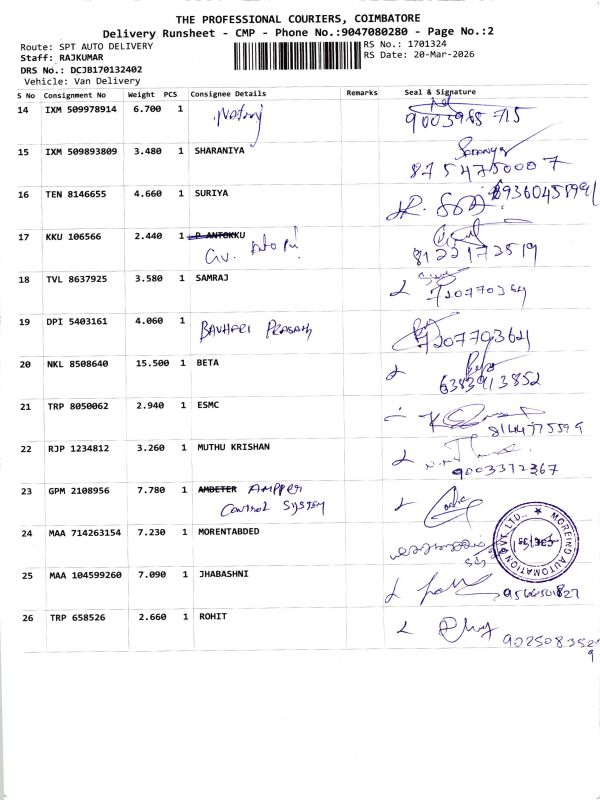 THE PROFESSIONAL COURIERS, COIMBATORE
Delivery Runsheet - CMP - Phone No.:9047080280 - Page No.:2
Route: SPT AUTO DELIVERY
RS No.: 1701324
Staff: RAJKUMAR
RS Date: 20-Mar-2026
DRS No.: DCJB170132402
Vehicle: Van Delivery
S No Consignment No Weight PCS Consignee Details Remarks Seal & Signature
14 IXM 509978914 6.700 1
15 IXM 509893809 3.480 1 SHARANIYA
8754750007
16 TEN 8146655 4.660 1 SURIYA
17 KKU 106566 2.440 1 P ANTOKKU
8122172519
18 TVL 8637925 3.580 1 SAMRAJ
19 DPI 5403161 4.060 1
7207793621
20 NKL 8508640 15.500 1 BETA
6383913852
21 TRP 8050062 2.940 1 ESMC
8144775599
22 RJP 1234812 3.260 1 MUTHU KRISHAN
9003372367
23 GPM 2108956 7.780 1 AMBETER AMPPER
Control System
24 MAA 714263154 7.230 1 MORENTABDED
MOREIND AUTOMATION PVT. LTD.,
25 MAA 104599260 7.090 1 JHABASHNI
9566501827
26 TRP 658526 2.660 1 ROHIT